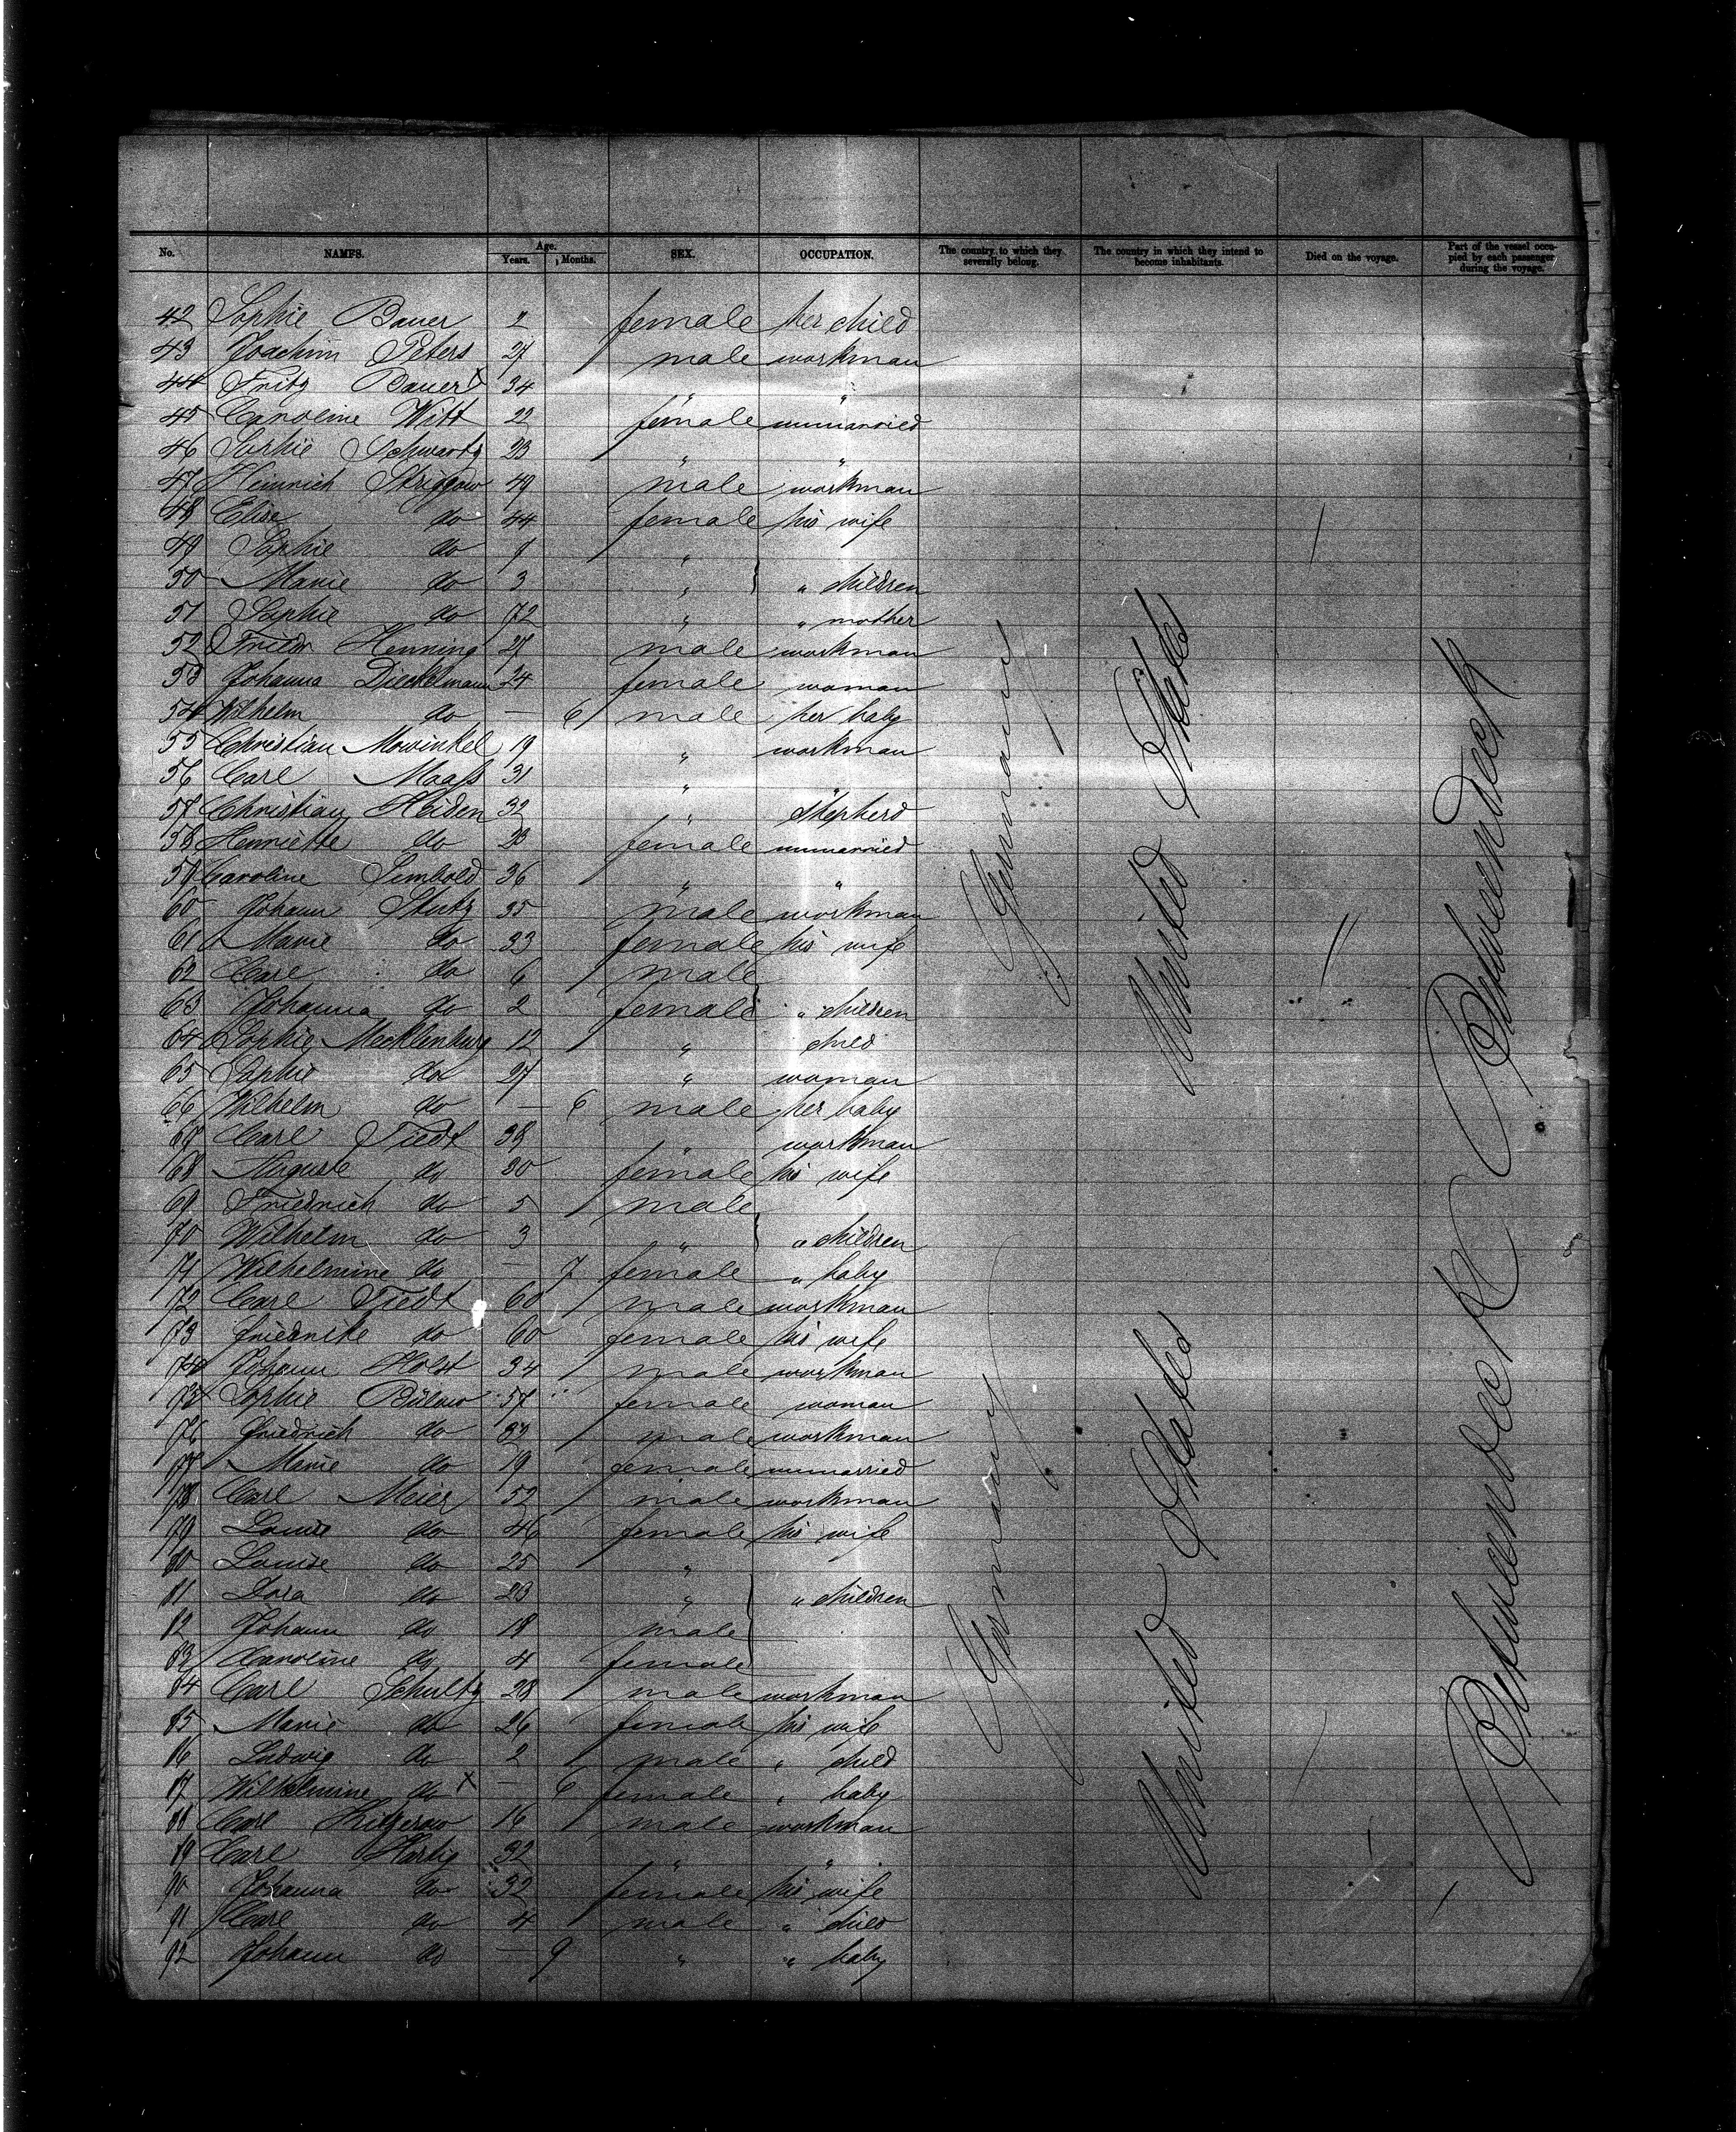 No. NAMES. Age. Years. Months. SEX. OCCUPATION. The country to which they severally belong. The country in which they intend to become inhabitants. Died on the voyage. Part of the vessel occupied by each passenger during the voyage.
42 Sophie Bauer 2 female her child
43 Joachim Peters 27 male workman
44 Fritz Bauer x 34 " "
45 Caroline Witt 22 female unmarried
46 Sophie Schwartz 23 " "
47 Heinrich Striggow 49 male workman
48 Elise do 44 female his wife
49 Sophie do "
50 Marie do 3 " " children
51 Sophie do 72 " " mother
52 Friedr Henning 27 male workman
53 Johanna Dieckelmann 24 female woman
54 Wilhelm do — 6 male her baby
55 Christian Mowinkel 19 " workman
56 Carl Maaß 31 " "
57 Christian Heiden 32 " shepherd
58 Henriette do 23 female unmarried
59 Caroline Simbold 36 " "
60 Johann Stutz 35 male workman
61 Marie do 33 female his wife
62 Carl do 6 male
63 Johanna do 2 female " children
64 Sophie Mecklenburg 12 " child
65 Sophie do 27 " woman
66 Wilhelm do — 6 male her baby
67 Carl Tiedt 38 " workman
68 Auguste do 30 female his wife
69 Friedrich do 5 male
70 Wilhelm do 3 " " children
71 Wilhelmine do — 7 female " baby
72 Carl Tiedt 60 male workman
73 friedrike do 60 female his wife
74 Johann Holst 34 male workman
75 Sophie Bülow 57 female woman
76 Friedrich do 32 male workman
77 Marie do 19 female unmarried
78 Carl Meier 52 male workman
79 Louise do 46 female his wife
80 Louise do 25 "
81 Dora do 23 " " children
82 Johann do 18 male
83 Caroline do 4 female
84 Carl Schultz 28 male workman
85 Marie do 26 female his wife
86 Ludwig do 2 male " child
87 Wilhelmine do x — 6 female " baby
88 Carl 16 male workman
89 Carl Hartig 32 " "
90 Johanna do 32 female his wife
91 Carl do 4 male " child
92 Johann do — 9 " " baby
Germany
United States
Betweendeck
Germany
United States
Betweendeck